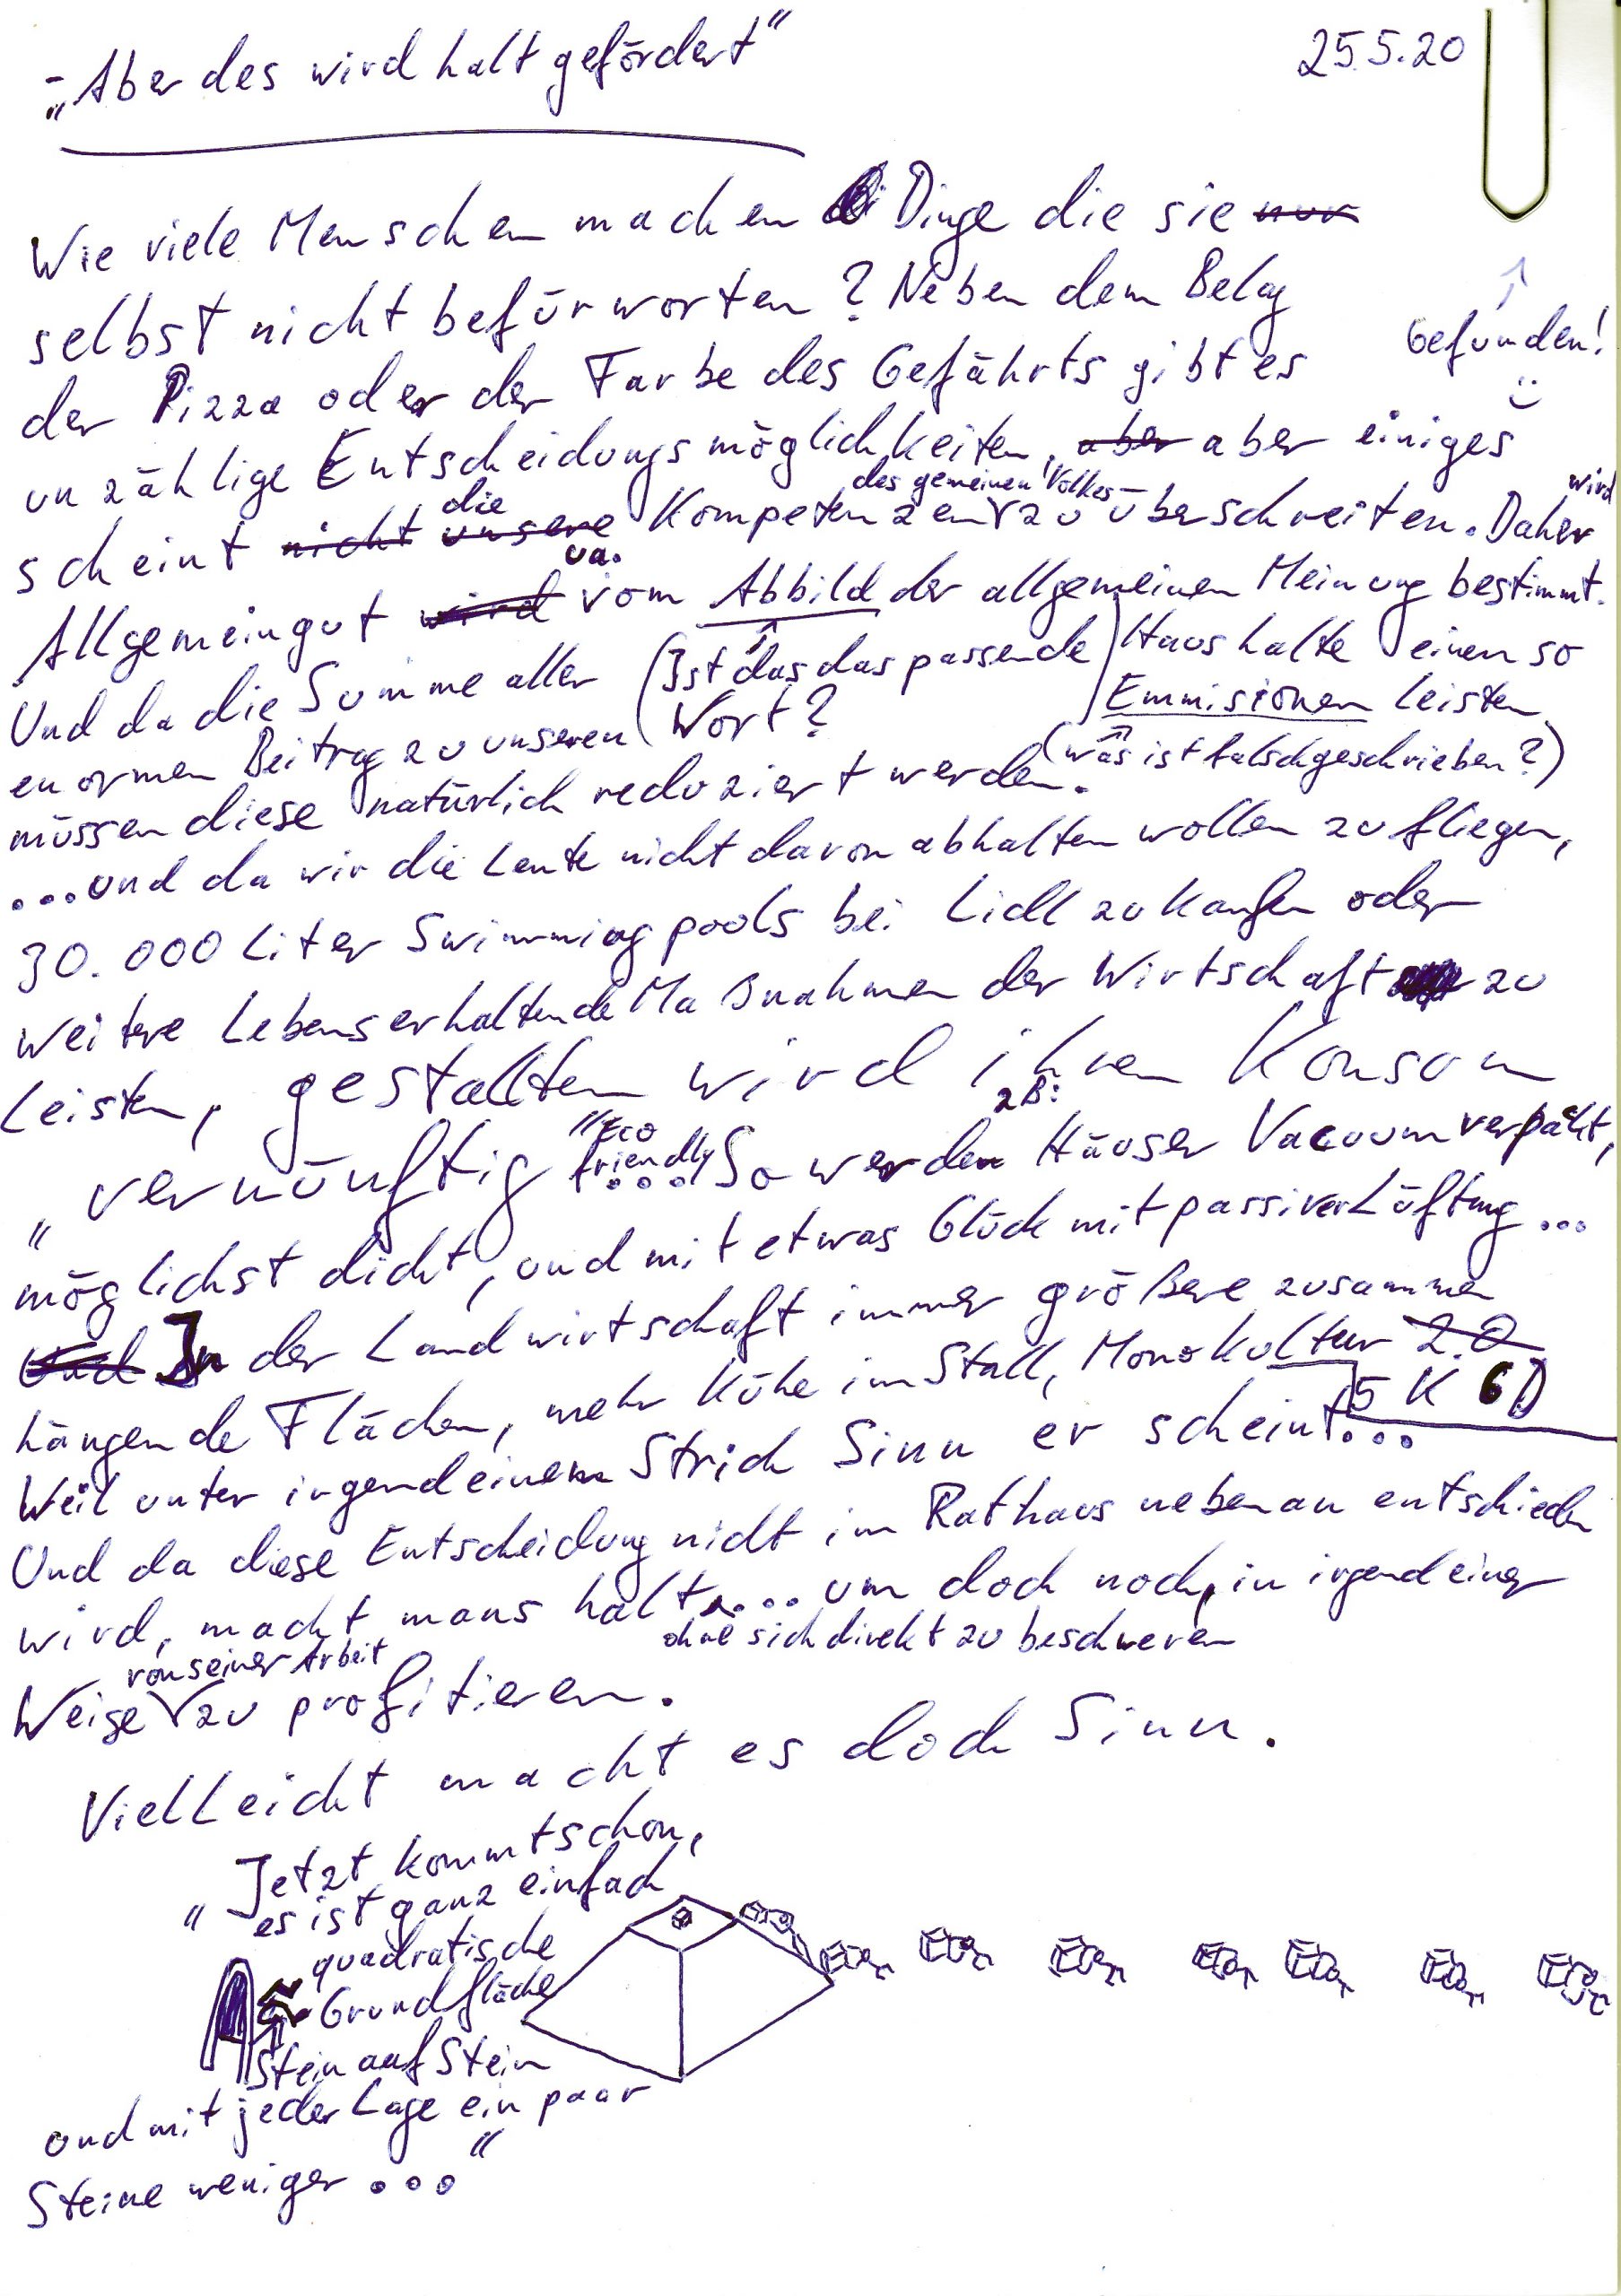 - „Aber des wird halt gefördert“
25.5.20
Wie viele Menschen machen Dinge die sie nur
selbst nicht befürworten? Neben dem Belag
Gefunden!
der Pizza oder der Farbe des Gefährts gibt es
unzählige Entscheidungsmöglichkeiten, aber aber einiges
die des gemeinen Volkes wird
scheint nicht unsere Kompetenzen zu überschreiten. Daher
ua.
Allgemeingut wird vom Abbild der allgemeinen Meinung bestimmt.
Und da die Summe aller (Ist das das passende Haushalte einen so
enormen Beitrag zu unseren Wort?) Emmisionen leisten
(was ist falschgeschrieben?)
müssen diese natürlich reduziert werden.
...und da wir die Leute nicht davon abhalten wollen zu fliegen,
30.000 Liter Swimmingpools bei Lidl zu kaufen oder
weitere Lebenserhaltende Maßnahmen der Wirtschaft zu
leisten, gestallten wird ihren Konsum
"Eco friendly zB:
„vernünftig ... So werden Häuser Vacuumverpackt,
möglichst dicht, und mit etwas Glück mit passiver Lüftung ...
Und In der Landwirtschaft immer größere zusammen
hängende Flächen, mehr Kühe im Stall, Monokultur 2.0
5 K 6D
Weil unter irgendeinem Strich Sinn erscheint...
Und da diese Entscheidung nicht im Rathaus nebenan entschieden
wird, macht mans halt .... um doch noch, in irgendeiner
ohne sich direkt zu beschweren
von seiner Arbeit
Weise zu profitieren.
Vielleicht macht es doch Sinn.
„Jetzt kommt schon,
es ist ganz einfach
quadratische
Grundfläche
Stein auf Stein
und mit jeder Lage ein paar
Steine weniger ..."